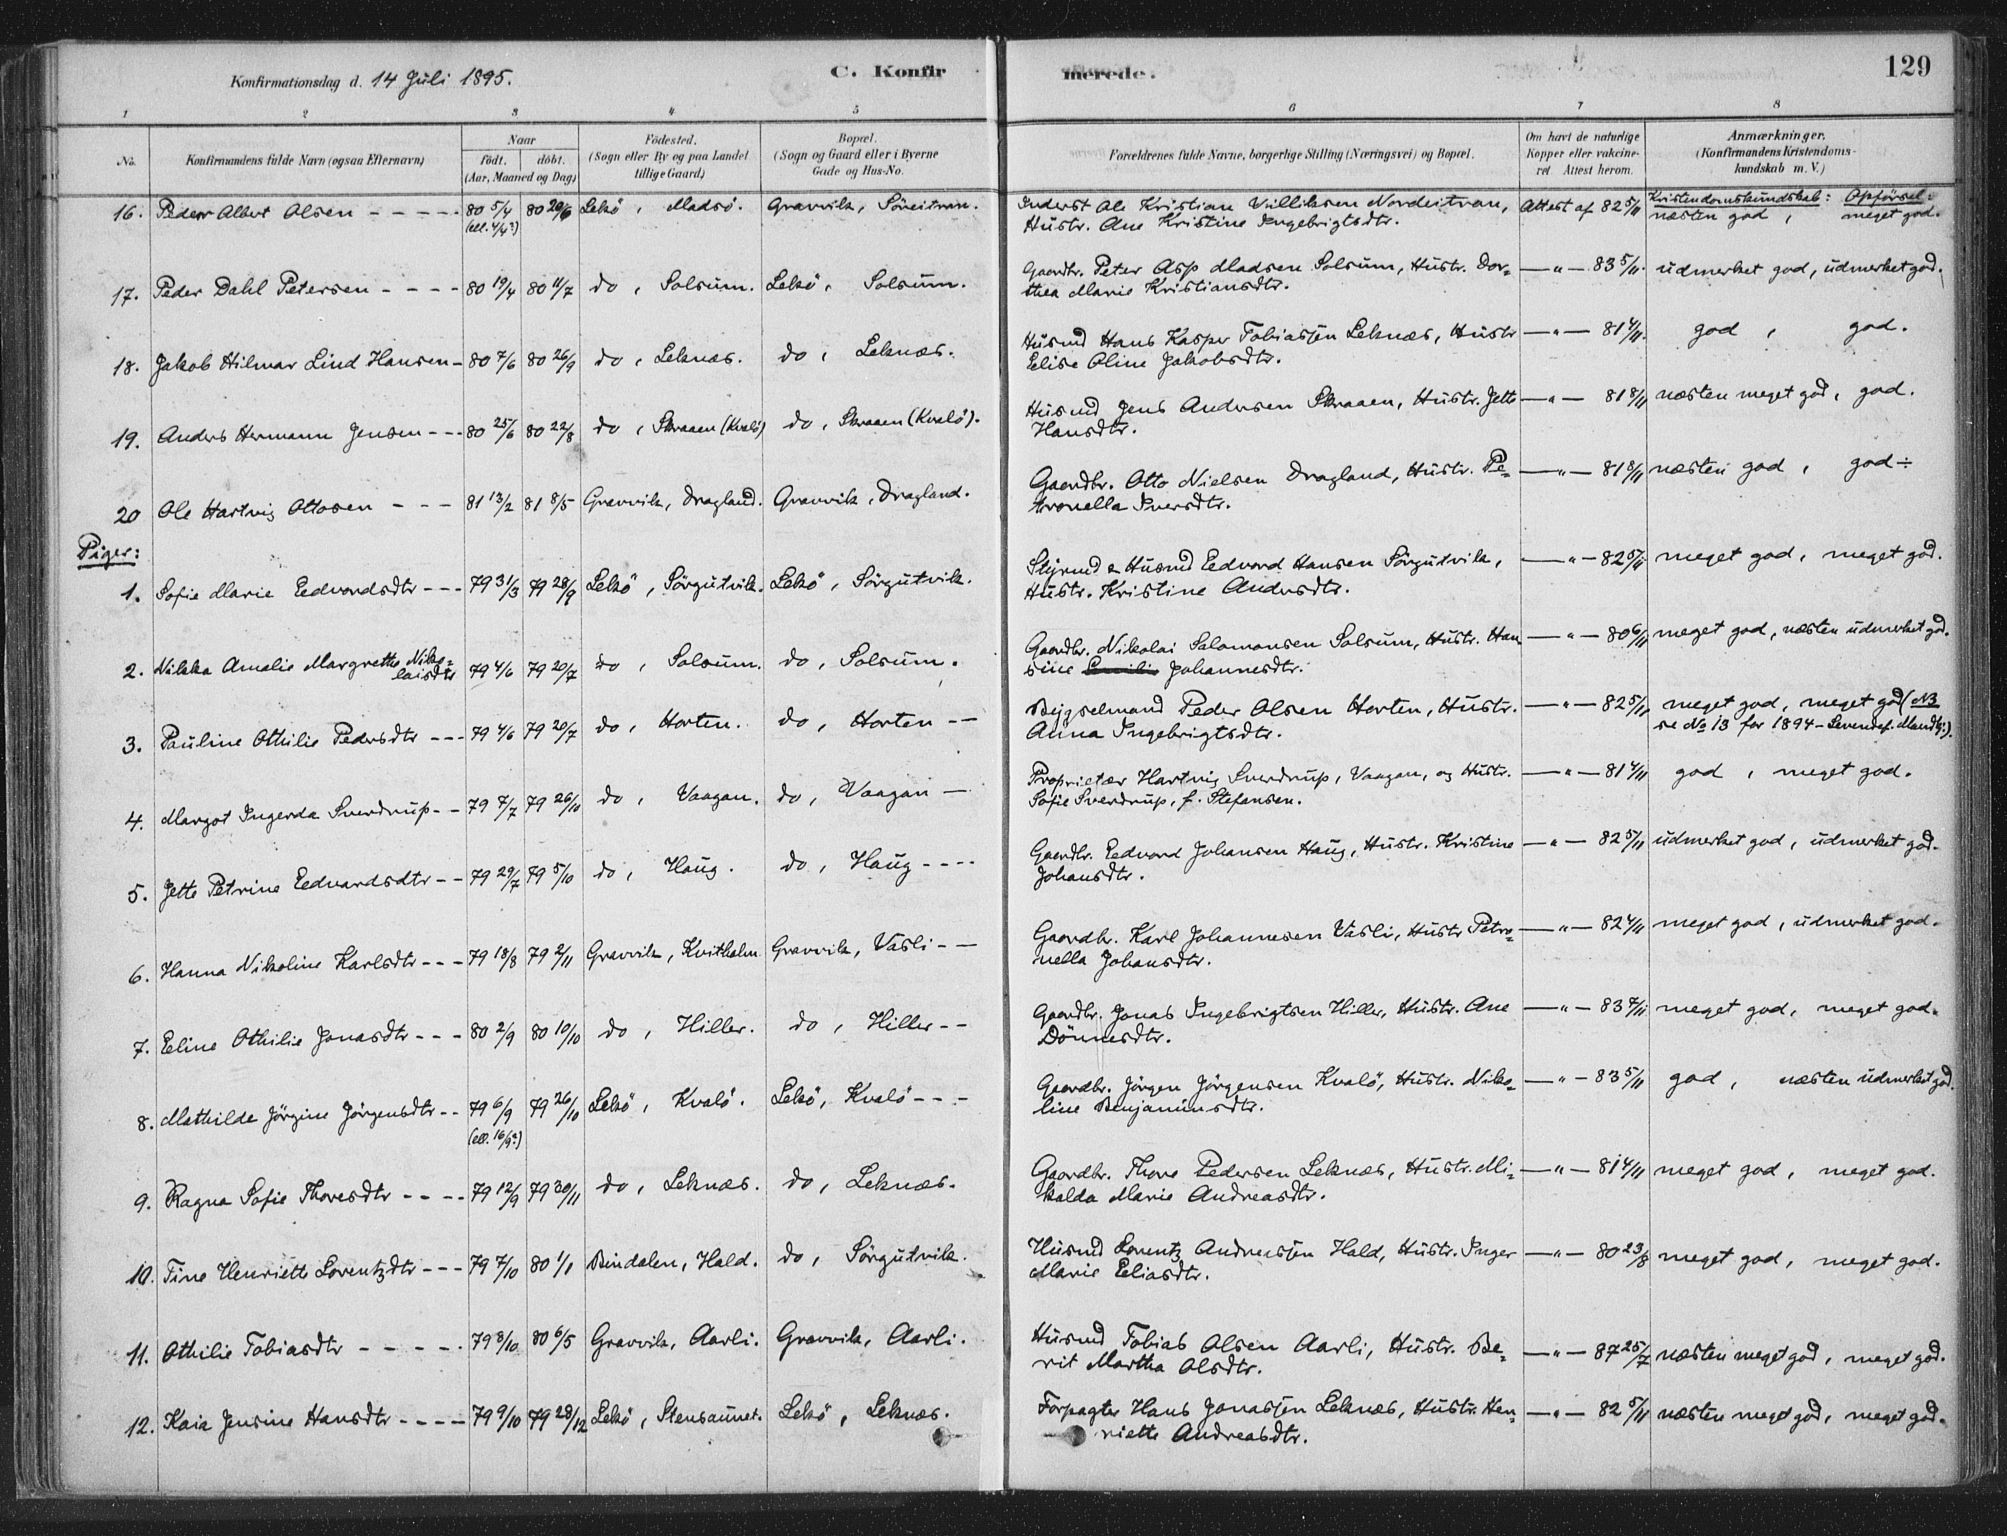 Konfirmationsdag d. 14 Juli 1895. C. Konfirmerede. 129
1 2 3 4 5 6 7 8
No. Konfirmandens fulde Navn (ogsaa Efternavn) Naar födt. döbt. (Aar, Maaned og Dag) Födested. (Sogn eller By og paa Landet tillige Gaard) Bopæl. (Sogn og Gaard eller i Byerne Gade og Hus-No. Forældrenes fulde Navne, borgerlige Stilling (Næringsvei) og Bopæl. Om havt de naturlige Kopper eller vakcineret. Attest herom. Anmærkninger. (Konfirmandens Kristendomskundskab m. V.)
Kristendomskundskab: Opförsel:
16. Peder Albert Olsen 80 5/4 (ell. 4/4?) 80 20/6 Lekö, Madsö. Gravvik, Söreitran. Inderst Ole Kristian Villiksen Nordeitran, Attest af 82 5/11 næsten god, meget god.
Hustr. Ane Kristine Ingebrigtsdtr.
17. Peder Dahl Petersen 80 19/4 80 11/7 do, Solsum. Lekö, Solsum. Gaardbr. Peter Asp Madsen Solsum, Hustr. Dor- —"— 83 5/11. udmerket god, udmerket god.
thea Marie Kristiansdtr.
18. Jakob Hilmar Lind Hansen 80 7/6 80 26/9 do, Leknæs. do, Leknæs. Husmd Hans Kasper Tobiassen Leknæs, Hustr —"— 81 4/11. god, god.
Elise Oline Jakobsdtr.
19. Anders Hermann Jensen 80 25/6 80 22/8 do, Skraaen (Kvalö) do, Skraaen (Kvalö). Husmd Jens Andersen Skraaen, Hustr. Jette —"— 81 8/11 næsten meget god, god.
Hansdtr.
20 Ole Hartvig Ottosen 81 13/2 81 8/5 Gravvik, Dragland. Gravvik, Dragland. Gaardbr. Otto Nielsen Dragland, Hustr. Pe- —"— 81 8/11 næsten god, god ÷
tronella Iversdtr.
Piger:
1. Sofie Marie Eedvardsdtr 79 31/3 79 28/9 Lekö, Sörgutvik. Lekö, Sörgutvik. Styrmd & Husmd Eedvard Hansen Sörgutvik, —"— 82 5/11 meget god, meget god.
Hustr. Kristine Andersdtr.
2. Nikka Amalie Margrethe Niko-laisdtr 79 4/6 79 20/7 do, Solsum. do, Solsum. Gaardbr. Nikolai Salomonsen Solsum, Hustr. Han —"— 80 6/11 meget god, næsten udmerket god.
sine Johannesdtr.
3. Pauline Othilie Pedersdtr 79 4/6 79 20/7 do, Horten. do, Horten Bygselmand Peder Olsen Horten, Hustr. —"— 82 5/11 meget god, meget god (NB
Anna Ingebrigtsdtr. se No 13 for 1894 - Levendef. Mandkj:).
4. Margot Ingerda Sverdrup 79 7/7 79 26/10 do, Vaagan. do, Vaagan Proprietær Hartvig Sverdrup, Vaagan, og Hustr. —"— 81 4/11 god, meget god.
Sofie Sverdrup, f. Stefansen.
5. Jette Petrine Eedvardsdtr 79 29/7 79 5/10 do, Haug. do, Haug Gaardbr. Eedvard Johansen Haug, Hustr. Kristine —"— 82 5/11 udmerket god, udmerket god.
Johansdtr.
6. Hanna Nikoline Karlsdtr 79 18/8 79 2/11 Gravvik, Kvitholm Gravvik, Vasli Gaardbr. Karl Johannesen Vasli, Hustr Petro- —"— 82 4/11 meget god, udmerket god.
nella Johansdtr.
7. Eeline Othilie Jonasdtr 80 2/9 80 10/10 do, Hiller. do, Hiller Gaardbr. Jonas Ingebrigtsen Hiller, Hustr. Ane —"— 83 7/11 meget god, meget god.
Dönnesdtr.
8. Mathilde Jörgine Jörgensdtr 79 6/9 (ell. 16/9?) 79 26/10 Lekö, Kvalö. Lekö, Kvalö Gaardbr. Jörgen Jörgensen Kvalö, Hustr. Niko- —"— 83 5/11 god, næsten udmerket god.
line Benjaminsdtr.
9. Ragna Sofie Thoresdtr 79 12/9 79 30/11 do, Leknæs. do, Leknæs. Gaardbr. Thore Pedersen Leknæs, Hustr. Mi- —"— 81 4/11 meget god, meget god.
kalda Marie Andreasdtr.
10. Tine Henriette Lorentzdtr 79 7/10 80 1/1 Bindalen, Hald. do, Sörgutvik. Husmd Lorentz Andreassen Hald, Hustr. Inger —"— 80 23/8 meget god, meget god.
Marie Eeliasdtr.
11. Othilie Tobiasdtr 79 8/10 80 6/5 Gravvik, Aarli. Gravvik, Aarli. Husmd Tobias Olsen Aarli, Hustr. Be- —"— 87 25/7 næsten meget god, meget god.
rit Martha Olsdtr.
12. Kaia Jensine Hansdtr 79 9/10 79 28/12 Lekö, Stensaunet. Lekö, Leknæs. Forpagter Hans Jonassen Leknæs, Hustr. Hen- —"— 82 5/11 næsten meget god, meget god.
riette Andreasdtr.